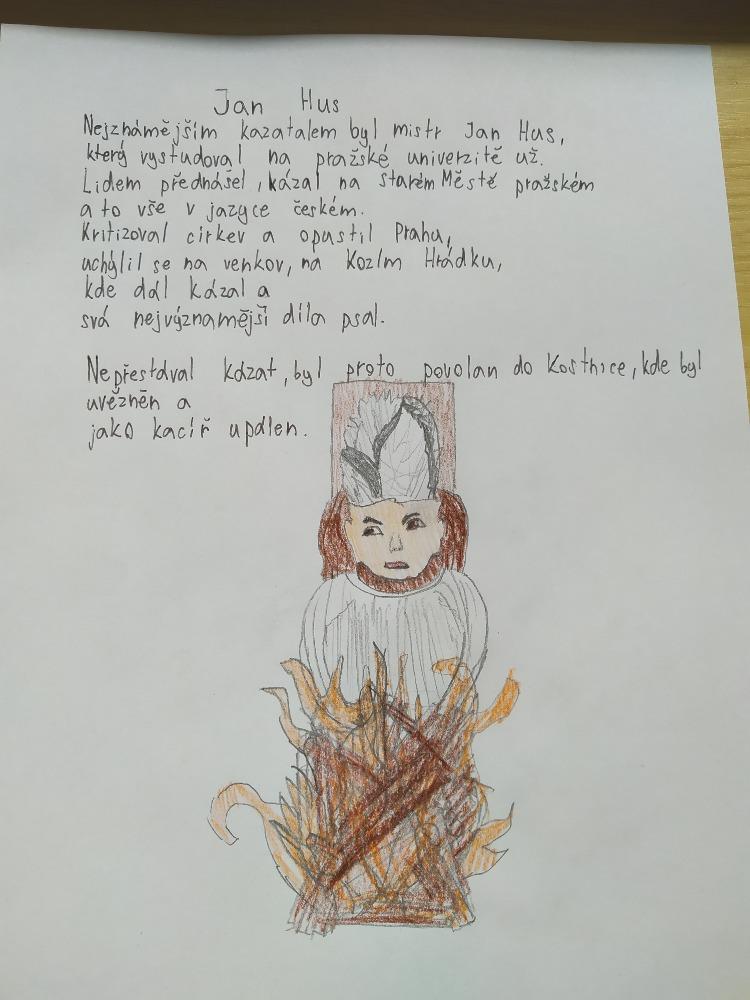 Jan Hus
Nejznámějším kazatalem byl mistr Jan Hus,
který vystudoval na pražské univerzitě už.
Lidem přednášel, kázal na Starém Městě pražském
a to vše v jazyce českém.
Kritizoval církev a opustil Prahu,
uchýlil se na venkov, na Kozím Hrádku,
kde dál kázal a
svá nejvýznamější díla psal.
Nepřestával kázat, byl proto povolan do Kostnice, kde byl
uvězněn a
jako kacíř upálen.